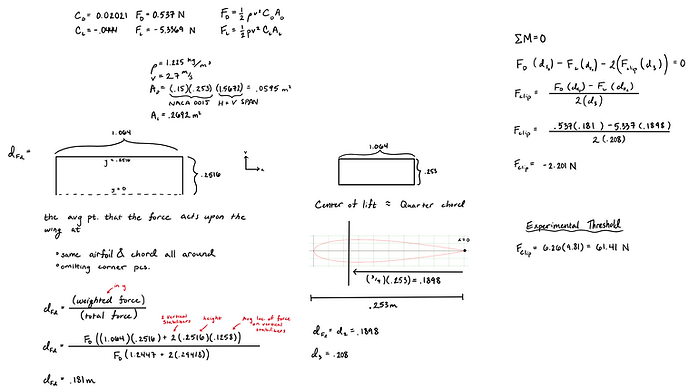 C_D = 0.02021 F_D = 0.537 N F_D = 1/2 ρv² C_D A_D
C_L = -.0444 F_L = -5.3369 N F_L = 1/2 ρv² C_L A_L
ρ = 1.225 kg/m³
v = 27 m/s
A_D = (.15)(.253)(1.5672) = .0595 m²
NACA 0015 H + V SPAN
A_L = .2692 m²
d_Fd =
1.064
y = .2516
.2516
y = 0
the avg pt. that the force acts upon the
wing at
• same airfoil & chord all around
• omitting corner pcs.
in y
d_Fd = (weighted force) / (total force)
2 vertical stabilizers
height
Avg loc. of force on vertical stabilizers
d_Fd = F_D((1.064)(.2516) + 2(.2516)(.1258)) / F_D(1.2447 + 2(.29418))
d_Fd = .181m
1.064
.253
Center of lift ≈ Quarter chord
x=0
(3/4)(.253) = .1898
.253m
d_FL = d_2 = .1898
d_3 = .208
ΣM=0
F_clip = -2.201 N
Experimental Threshold
F_clip = 6.26(9.81) = 61.41 N